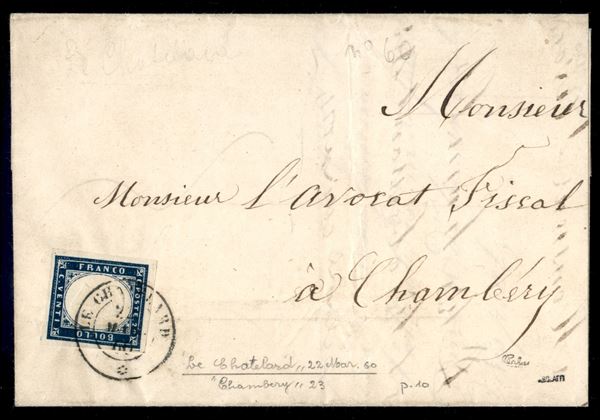 Le Chatelard
nº 60
Monsieur
Monsieur l'avocat Fiscal
à Chambéry
FRANCO
C. VENTI
POSTE 20
BOLLO
LE CHATELARD
Le Chatelard „ 22 Mar. 60
Chambery „ 23
p. 10